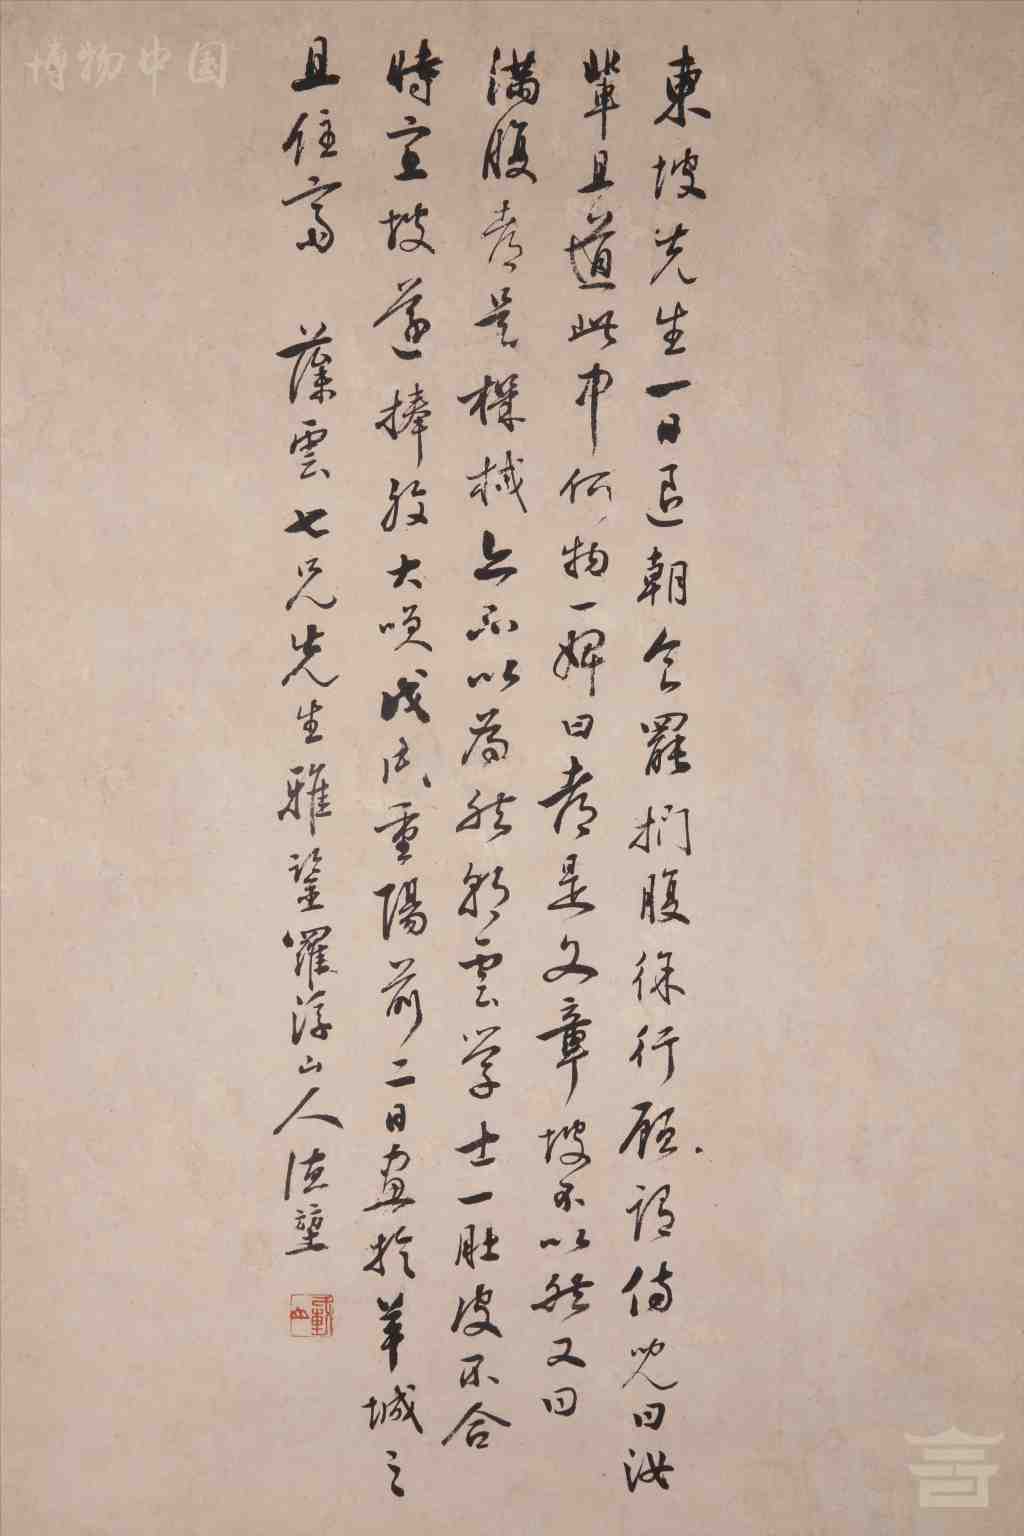 博物中国
東坡先生一日退朝食罷捫腹徐行顧謂侍兒曰汝
輩且道此中何物一婢曰都是文章坡不以然又曰
滿腹都是機械亦不以為然朝雲学士一肚皮不合
時宜坡遂捧腹大笑戊辰重陽前二日畫於羊城之
且住齋 藻雲七兄先生雅鑒羅浮山人德